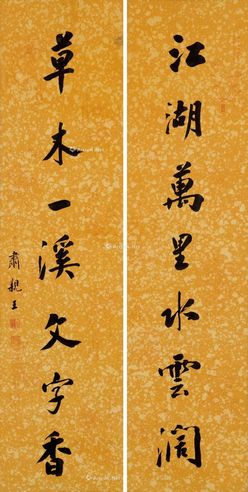 江湖萬里水雲濶
草木一溪文字香
肅親王